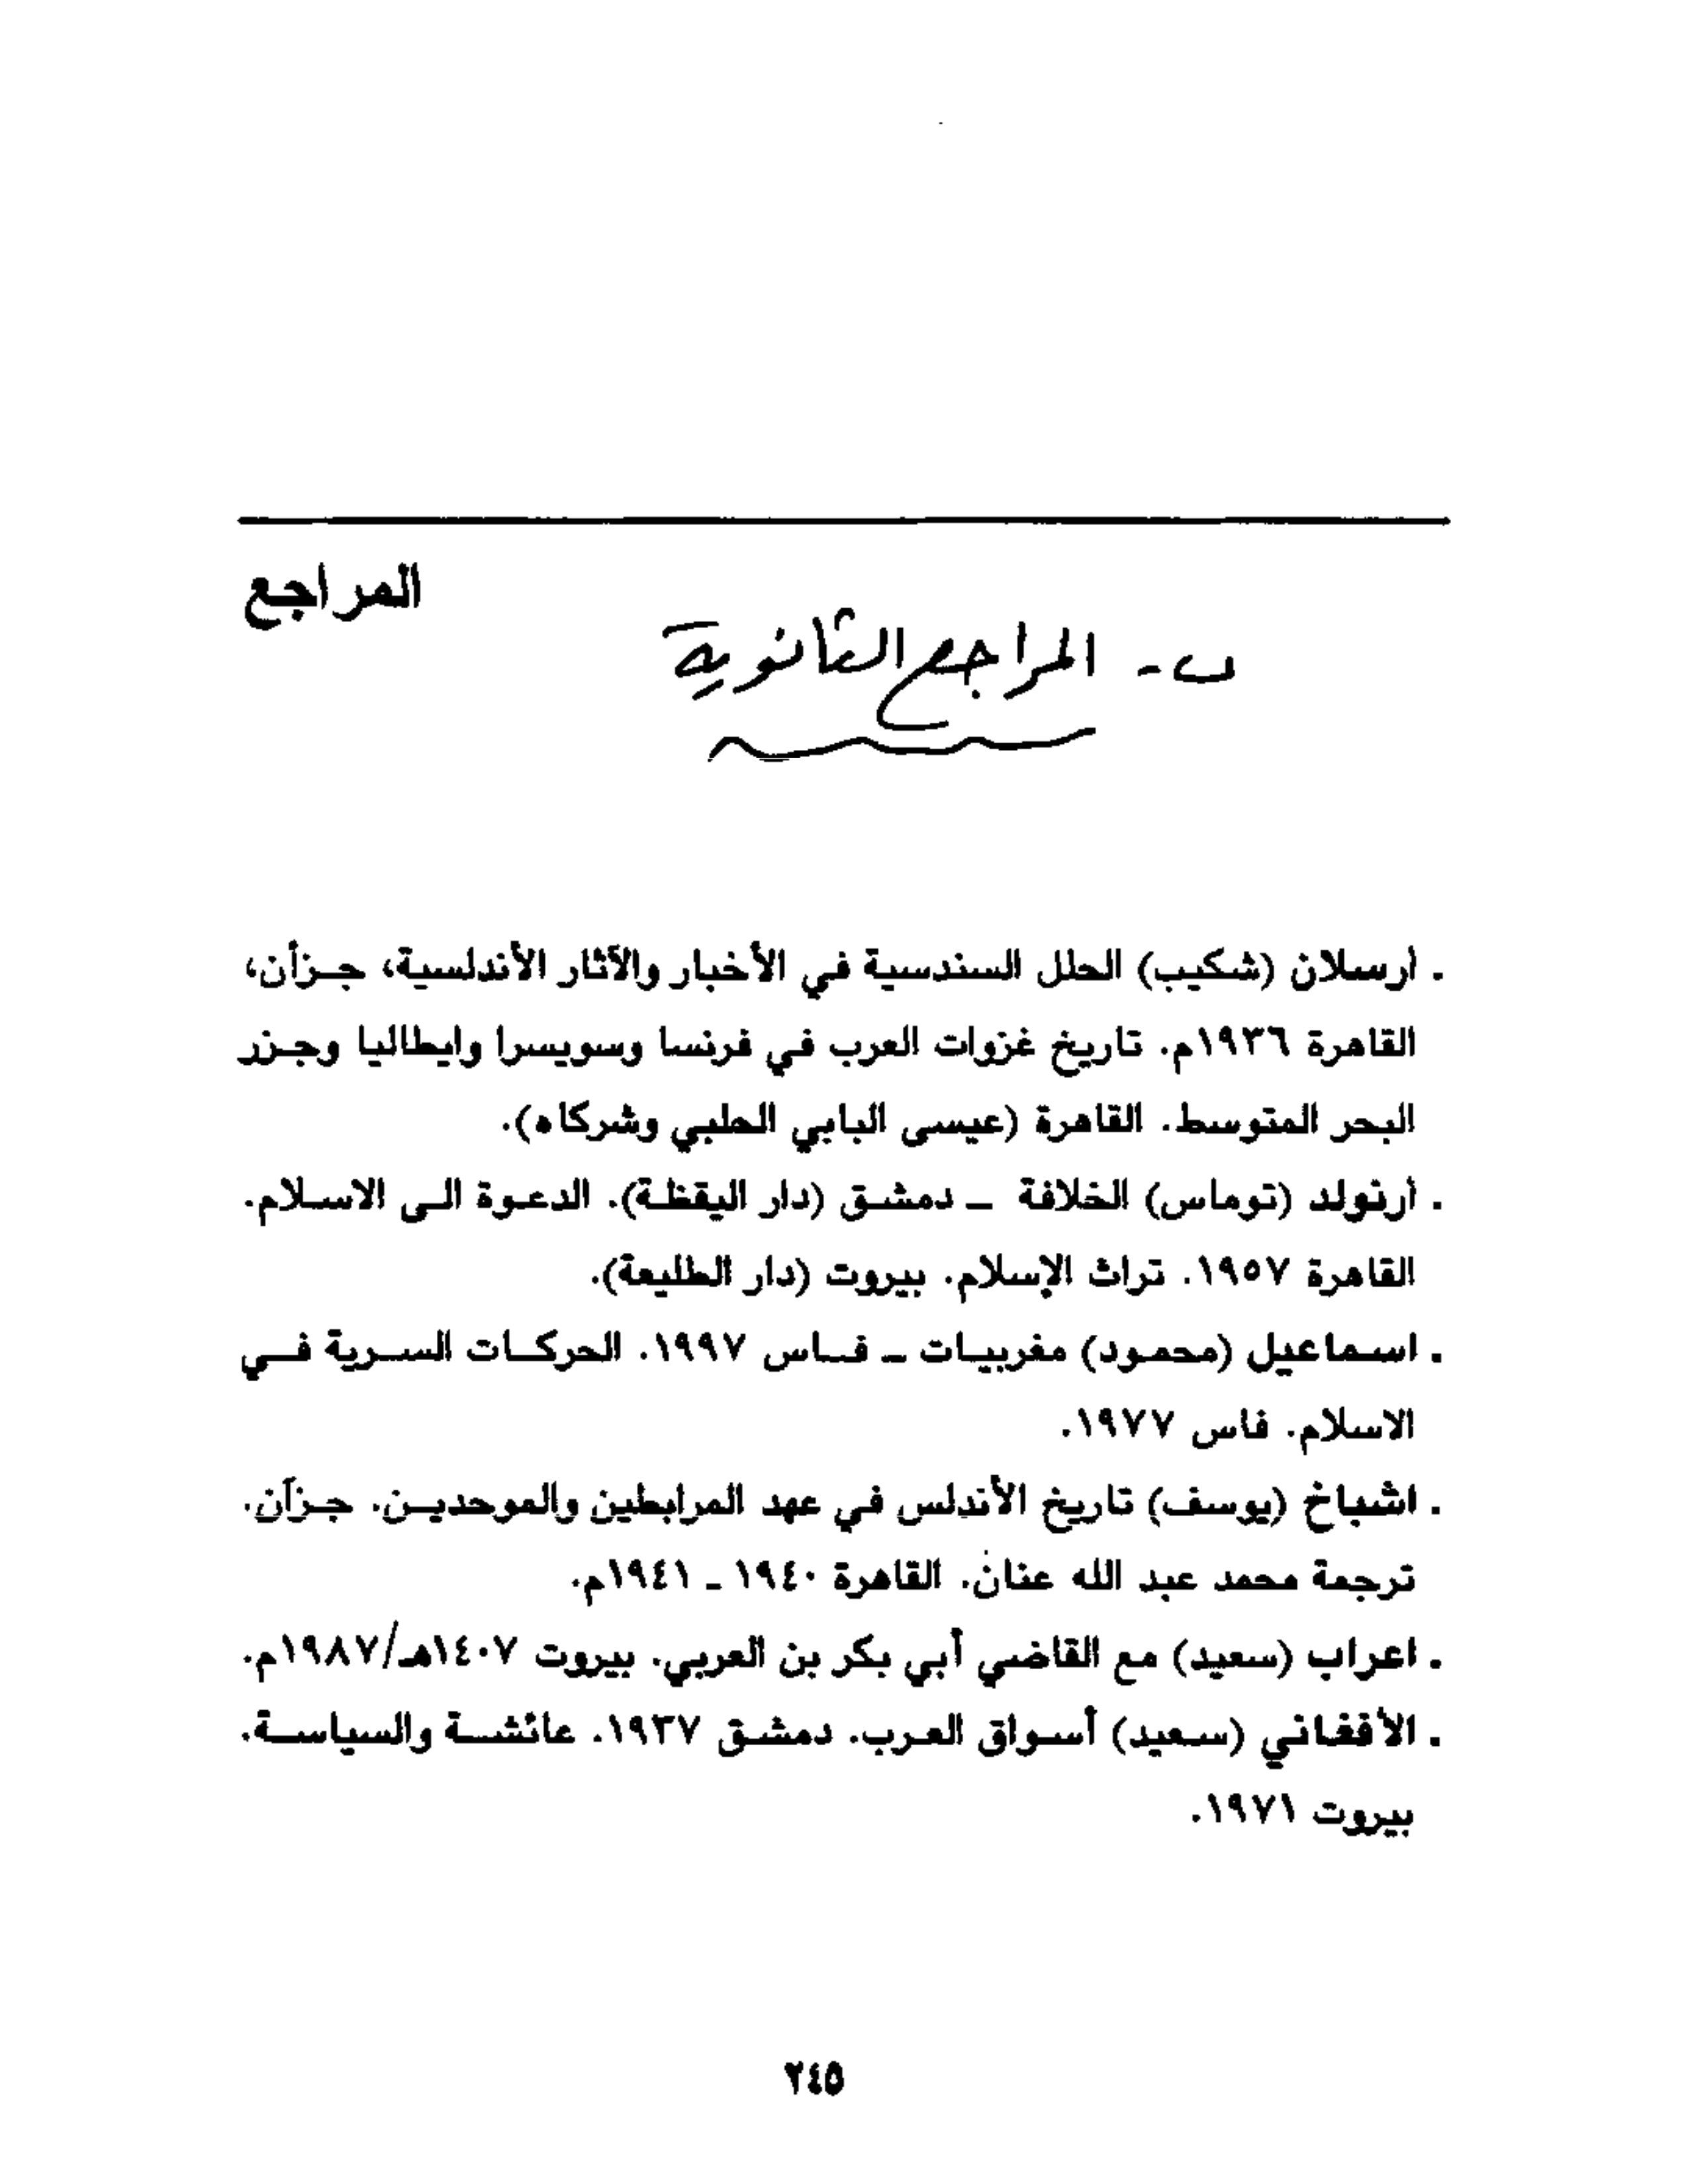 المراجع
ب - المراجع الثانوية
. أرسلان (شكيب) الحلل السندسية في الأخبار والآثار الأندلسية، جـزأن،
القاهرة ١٩٣٦م. تاريخ غزوات العرب في فرنسا وسويسرا وايطاليا وجـزر
البحر المتوسط. القاهرة (عيسى البابي الحلبي وشركاه).
. أرنولد (توماس) الخلافة ـ دمشـق (دار اليقظـة). الدعـوة الـى الاسـلام.
القاهرة ١٩٥٧. تراث الإسلام. بيروت (دار الطليعة).
. اسـماعيل (محمـود) مغربيـات ـ فـاس ١٩٩٧. الحركـات السـرية فـي
الاسلام. فاس ١٩٧٧.
. اشباخ (يوسف) تاريخ الأندلس في عهد المرابطين والموحديـن. جـزآن.
ترجمة محمد عبد الله عنان. القاهرة ١٩٤٠ ـ ١٩٤١م.
. اعراب (سعيد) مع القاضي أبي بكر بن العربي. بيروت ١٤٠٧هـ/١٩٨٧م.
. الأفغاني (سـعيد) أسـواق العـرب. دمشـق ١٩٣٧. عائشـة والسياسـة.
بيروت ١٩٧١.
٢٤٥